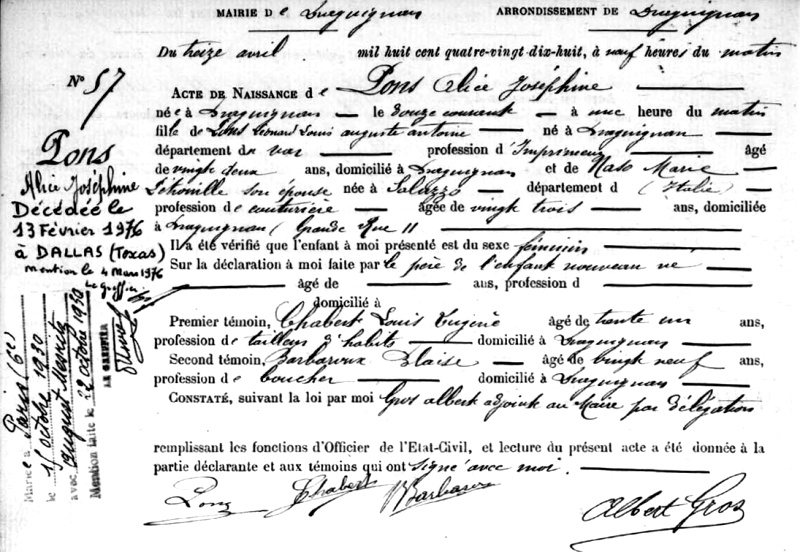 MAIRIE De Draguignan ARRONDISSEMENT DE Draguignan
Du treize avril mil huit cent quatre-vingt-dix-huit, à neuf heures du matin
N° 57
ACTE DE NAISSANCE de Pons Alice Joséphine
née à Draguignan le douze courant à une heure du matin
fille de Pons Léonard Louis auguste antoine né à Draguignan
département du var profession d'Imprimeur âgé
de vingt deux ans, domicilié à Draguignan et de Naso Marie
son épouse née à département d (Italie)
profession de couturière âgée de vingt trois ans, domiciliée
à Draguignan, Grande Rue 11
Il a été vérifié que l'enfant à moi présenté est du sexe féminin
Sur la déclaration à moi faite par le père de l'enfant nouveau né
âgé de ans, profession d
domicilié à
Premier témoin, Chabert Louis Eugène âgé de trente un ans,
profession de tailleur d'habits domicilié à Draguignan
Second témoin, Barbaroux Blaise âgé de vingt neuf ans,
profession de boucher domicilié à Draguignan
CONSTATÉ, suivant la loi par moi Gros albert adjoint au Maire par délégation
remplissant les fonctions d'Officier de l'Etat-Civil, et lecture du présent acte a été donnée à la
partie déclarante et aux témoins qui ont signé avec moi.
Pons Chabert Barbaroux
Albert Gros
Pons
Alice Joséphine
Décédée le
13 Février 1976
à DALLAS (Texas)
mention le 4 Mars 1976
Le Greffier
Mariée à Paris (6e)
le 15 octobre 1930
avec august Mesritz
Mention faite le 22 octobre 1930
LE GREFFIER